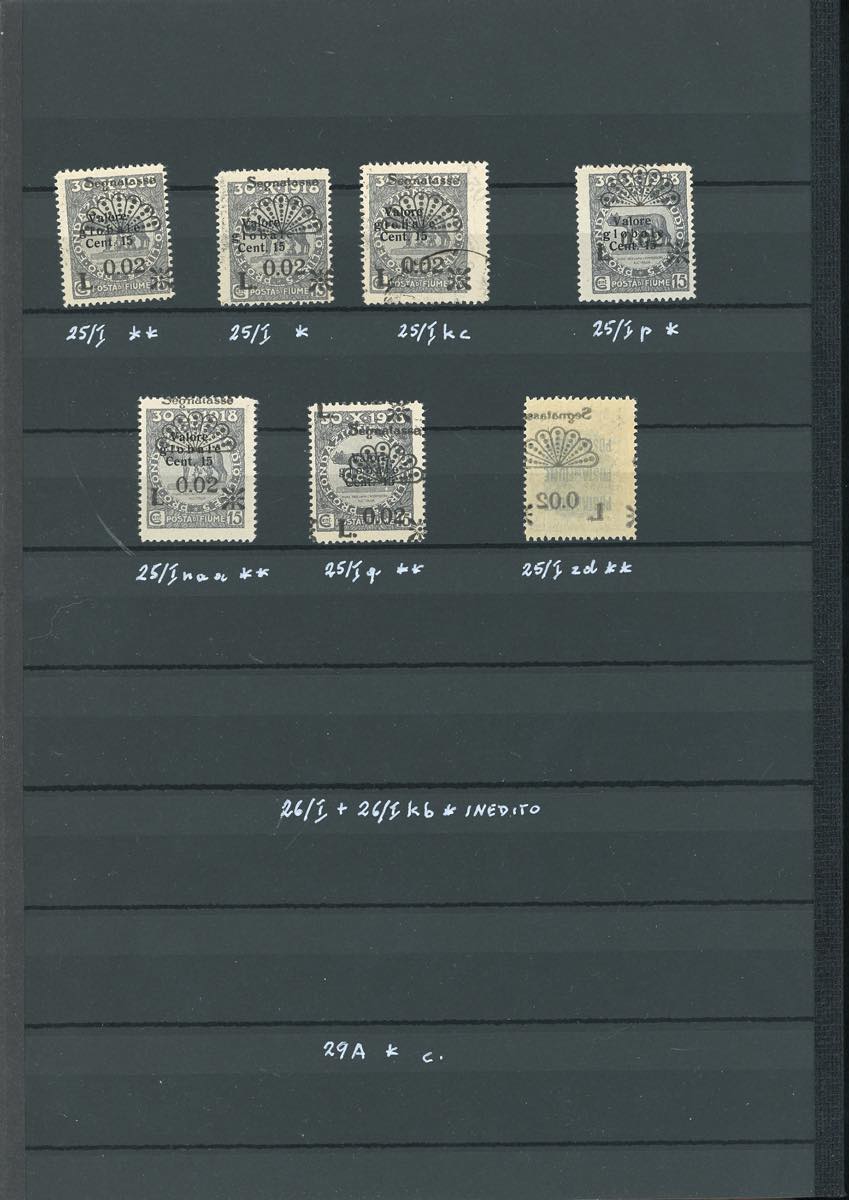 Segnatasse
30 1918
Valore
globale
Cent. 15
L. 0.02
POSTA DI FIUME
Segnatasse
30 1918
Valore
globale
Cent. 15
L. 0.02
POSTA DI FIUME
Segnatasse
30 1918
Valore
globale
Cent. 15
L. 0.02
POSTA DI FIUME
30
Valore
globale
Cent. 15
L.
POSTA DI FIUME 15
25/I **
25/I *
25/I kc
25/I p *
Segnatasse
30 1918
Valore
globale
Cent. 15
L. 0.02
POSTA DI FIUME 15
L.
Segnatasse
L. 0.02
POSTA DI FIUME 15
Segnatasse
0.02
L.
25/I naa **
25/I q **
25/I zd **
26/I + 26/I kb * INEDITO
29A * c.